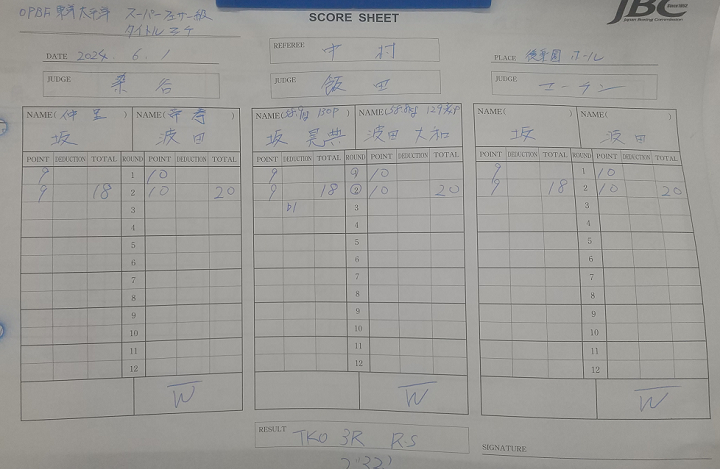 OPBF 東洋太平洋 スーパーフェザー級
タイトルマッチ
SCORE SHEET
JBC
Japan Boxing Commission
DATE 2024. 6. 1
REFEREE 中村
PLACE 後楽園ホール
JUDGE 桑谷
JUDGE 飯田
JUDGE
NAME( ) NAME( )
坂 波田
NAME( 58.9kg 130P NAME( 58.8kg 129¾P
坂 晃典 波田 大和
NAME( ) NAME( )
坂 波田
POINT DEDUCTION TOTAL ROUND POINT DEDUCTION TOTAL
9 1 10
9 18 2 10 20
3
4
5
6
7
8
9
10
11
12
W
POINT DEDUCTION TOTAL ROUND POINT DEDUCTION TOTAL
9 1 10
9 18 2 10 20
3
4
5
6
7
8
9
10
11
12
W
POINT DEDUCTION TOTAL ROUND POINT DEDUCTION TOTAL
9 1 10
9 18 2 10 20
3
4
5
6
7
8
9
10
11
12
W
RESULT TKO 3R R.S
SIGNATURE